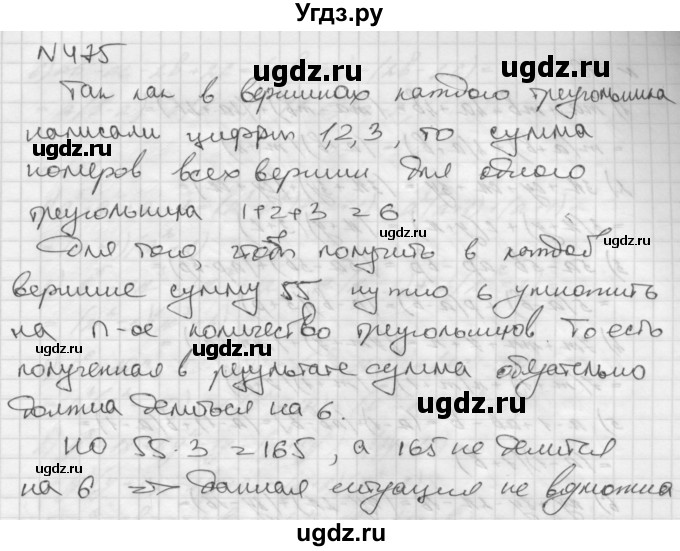 Угдз.ру
N 475
Так как в вершинах каждого треугольника
написали цифры 1,2,3, то сумма
номеров всех вершин для одного
треугольника 1+2+3=6.
Для того, чтоб получить в каждой
вершине сумму 55 нужно 6 умножить
на n-ое количество треугольников. То есть
полученная в результате сумма обязательно
должна делиться на 6.
Но 55·3=165, а 165 не делится
на 6 => данная ситуация не возможна
ugdz.ru
ugdz.ru
ugdz.ru
ugdz.ru
ugdz.ru
ugdz.ru
ugdz.ru
ugdz.ru
ugdz.ru
ugdz.ru
ugdz.ru